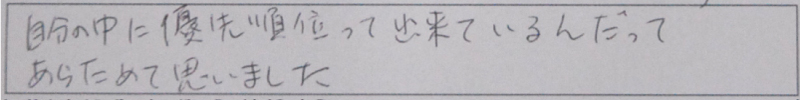 自分の中に優先順位って出来ているんだって
あらためて思いました